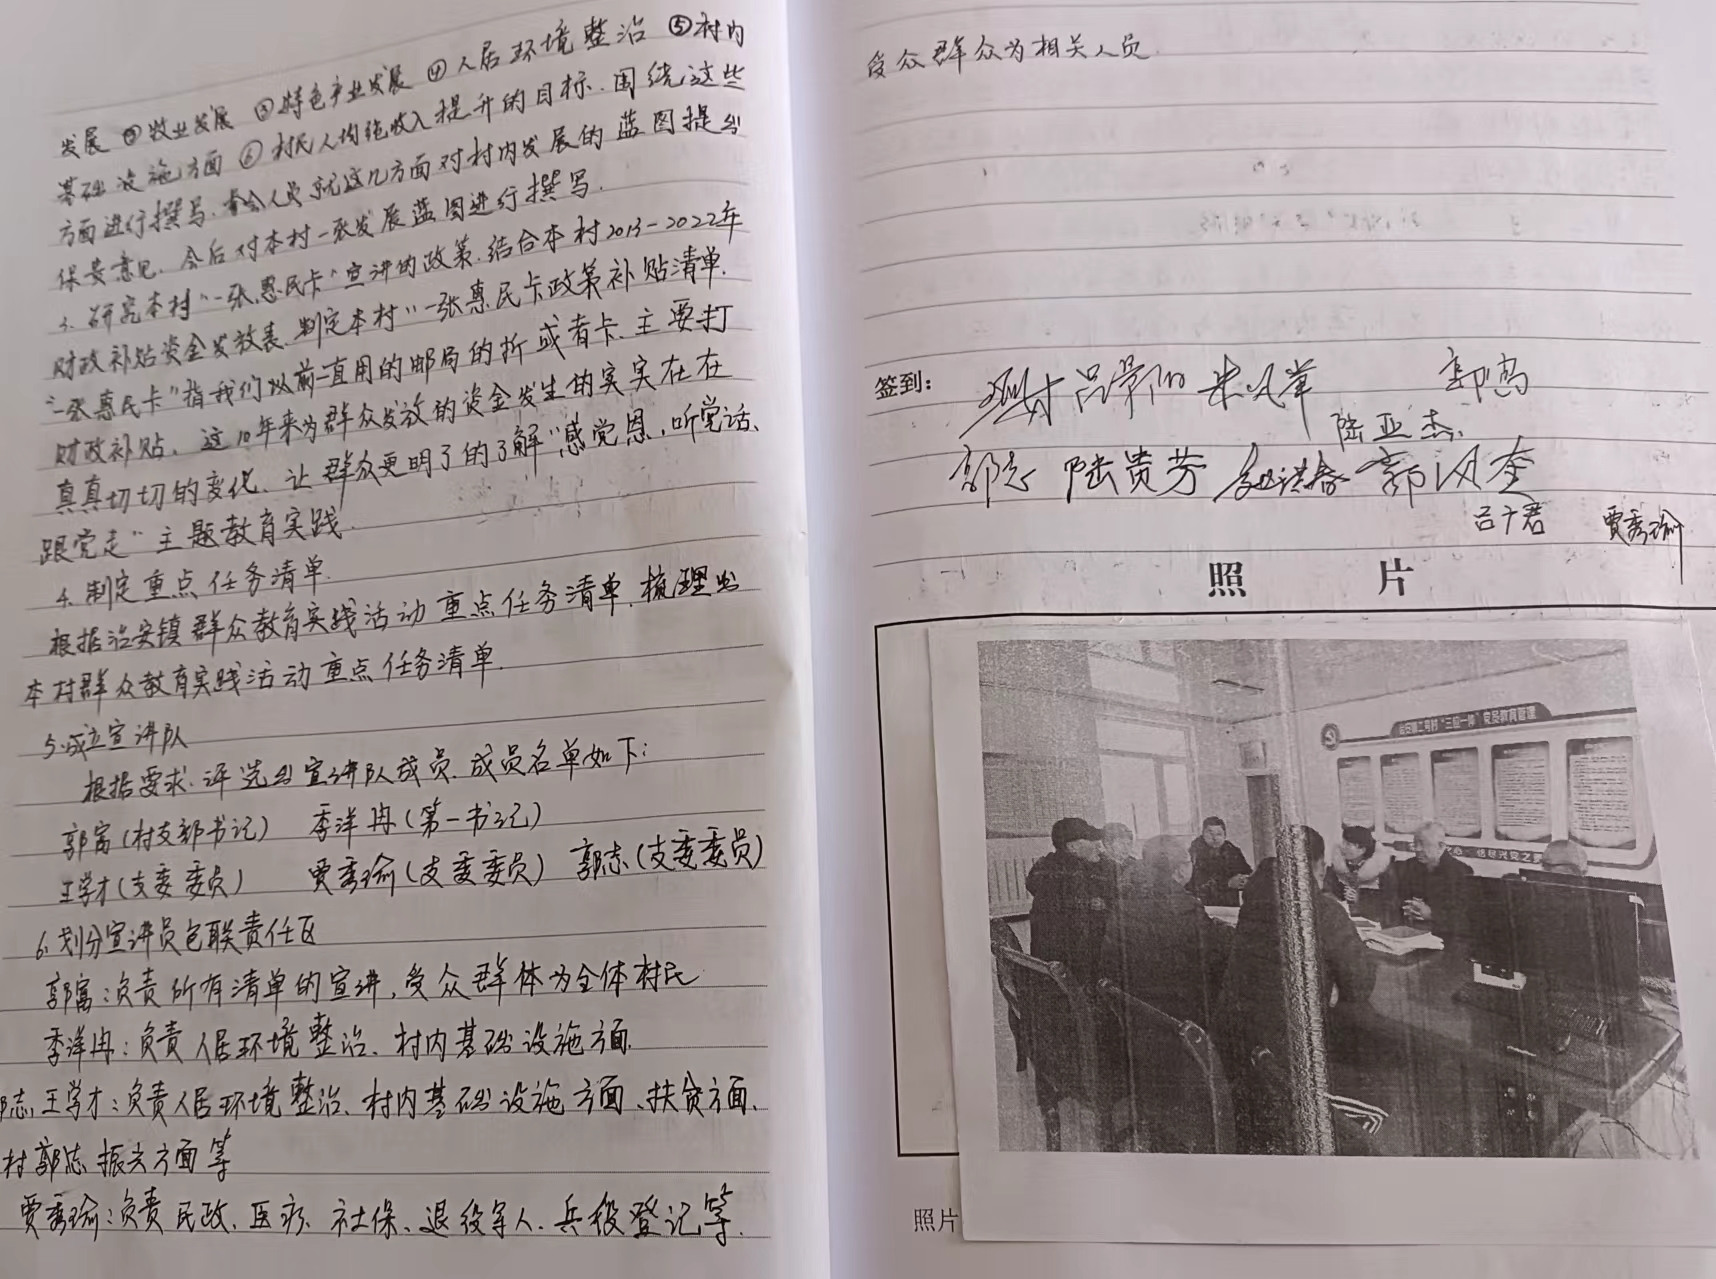 发展 ②牧业发展 ③特色产业发展 ④人居环境整治 ⑤村内
基础设施方面 ⑥村民人均纯收入提升的目标.围绕这些
方面进行撰写.参会人员就这几方面对村内发展的蓝图提出
保贵意见.会后对本村一张发展蓝图进行撰写.
3.研究本村“一张惠民卡”宣讲的政策.结合本村2013-2022年
财政补贴资金发放表.制定本村“一张惠民卡政策补贴清单.
“一张惠民卡”指我们以前一直用的邮局的折或者卡.主要打
财政补贴.这10年来为群众发放的资金发生的实实在在
真真切切的变化、让群众更明了的了解“感党恩,听党话、
跟党走”主题教育实践.
4.制定重点任务清单.
根据治安镇群众教育实践活动重点任务清单.梳理出
本村群众教育实践活动重点任务清单.
5.成立宣讲队
根据要求.评选出宣讲队成员.成员名单如下:
郭富(村支部书记) 季洋冉(第一书记)
王学才(支委委员) 贾秀瑜(支委委员) 郭志(支委委员)
6.划分宣讲员包联责任区
郭富:负责所有清单的宣讲,受众群体为全体村民
季洋冉:负责人居环境整治、村内基础设施方面.
郭志王学才:负责人居环境整治、村内基础设施方面、扶贫方面、
村郭志振兴方面等
贾秀瑜:负责民政、医疗、社保、退役军人、兵役登记等.
受众群众为相关人员.
签到: 郭富
陆亚杰
郭志 陆贵芳 郭汉奎
吕广君 贾秀瑜
照 片
治安第二号村“三位一体”党员教育管理
照片